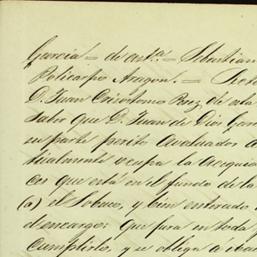 Garcia = de asta = Sebastian
Policarpo Aragon. =
D. Juan Crisostomo Baez de esta
Sabor que D. Juan de Dios Gar
su parte perito avaluador a
tualmente ocupa la acequia
ces que está en el fundo de la
(a) el Sobaco, y bien enterado
el encargo: Que jura en toda
cumplirlo, y se obliga á